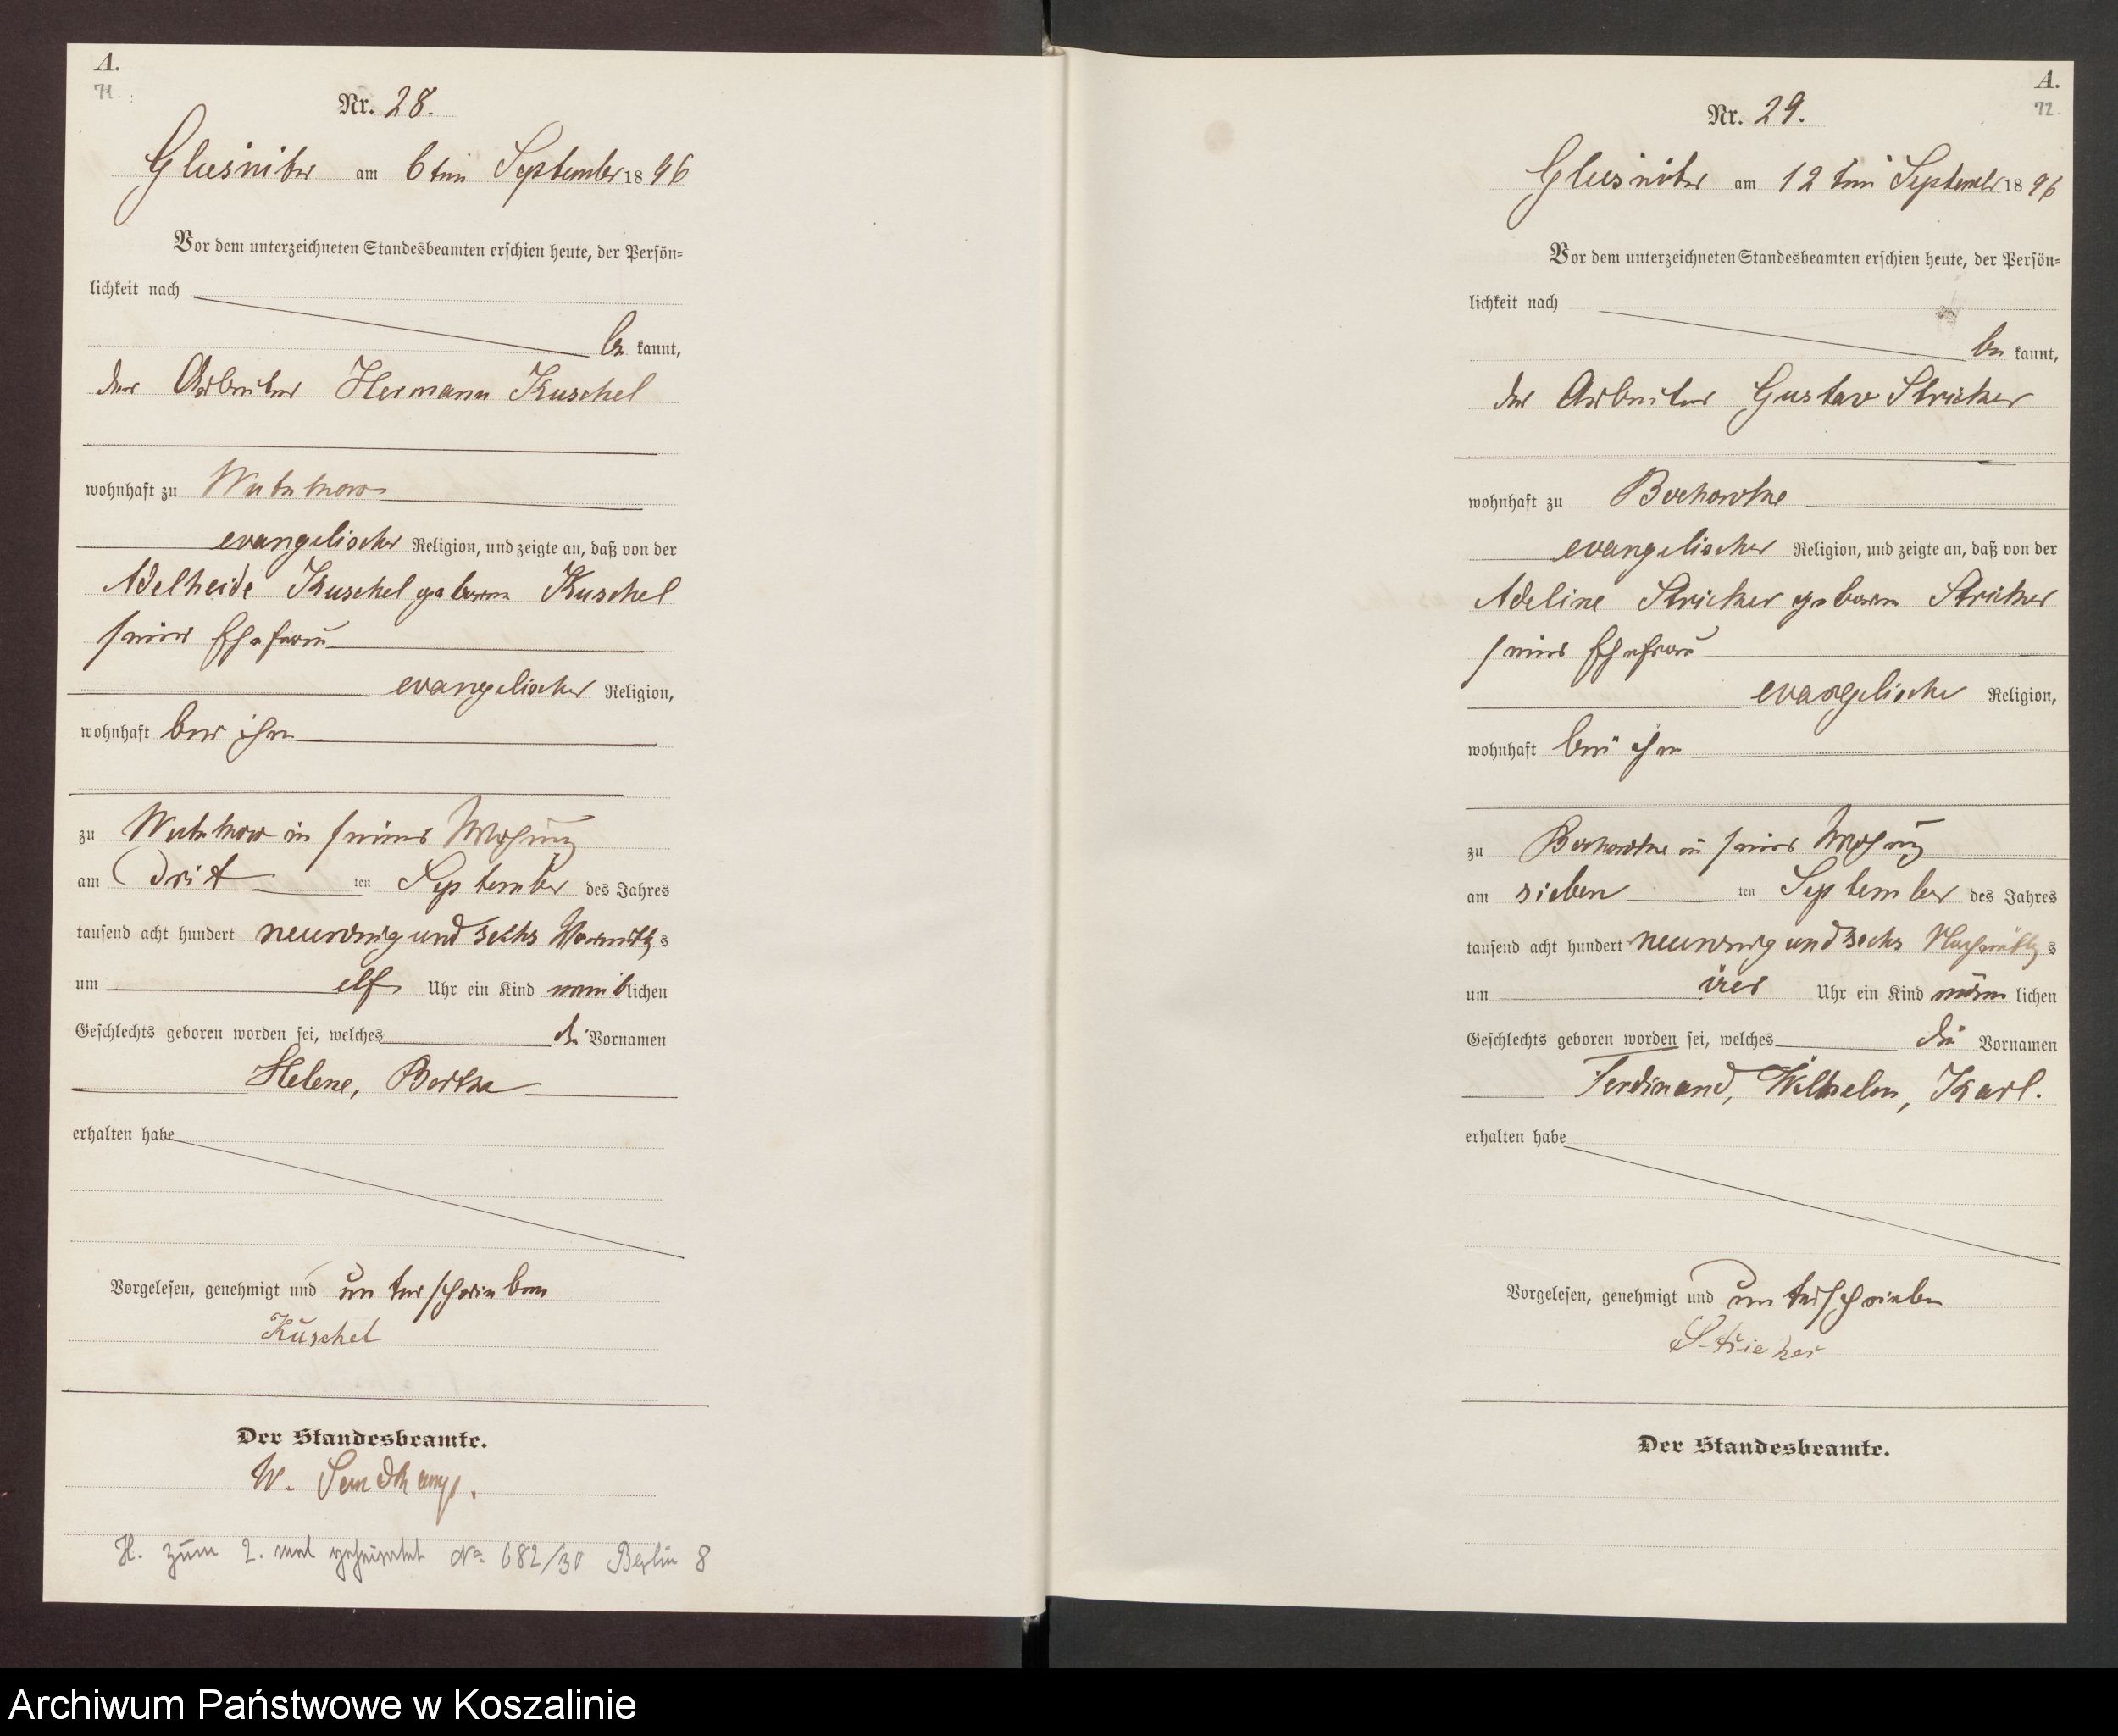 A.
71.
Nr. 28.
Glusnitz am 6ten September 1896
Vor dem unterzeichneten Standesbeamten erschien heute, der Persön=
lichkeit nach
be kannt,
der Arbeiter Hermann Kuschel
wohnhaft zu Wutzkow
evangelischer Religion, und zeigte an, daß von der
Adelheide Kuschel geborne Kuschel
seiner Ehefrau
evangelischer Religion,
wohnhaft bei ihm
zu Wutzkow in seiner Wohnung
am Dritten September des Jahres
tausend acht hundert neunzig und sechs Vormittags
um elf Uhr ein Kind weiblichen
Geschlechts geboren worden sei, welches die Vornamen
Helene, Bertha
erhalten habe
Vorgelesen, genehmigt und unterschrieben
Kuschel
Der Standesbeamte.
W.
H. zum 2. mal geheiratet No 682/30 Berlin 8
A.
72.
Nr. 29.
Glusnitz am 12ten September 1896
Vor dem unterzeichneten Standesbeamten erschien heute, der Persön=
lichkeit nach
be kannt,
der Arbeiter Gustav Stricker
wohnhaft zu Bochowke
evangelischer Religion, und zeigte an, daß von der
Adeline Stricker geborne Stricker
seiner Ehefrau
evangelische Religion,
wohnhaft bei ihm
zu Bochowke in seiner Wohnung
am sieben ten September des Jahres
tausend acht hundert neunzig und sechs Nachmittags
um vier Uhr ein Kind männlichen
Geschlechts geboren worden sei, welches die Vornamen
Ferdinand, Wilhelm, Karl.
erhalten habe
Vorgelesen, genehmigt und unterschrieben
Stricker
Der Standesbeamte.
Archiwum Państwowe w Koszalinie